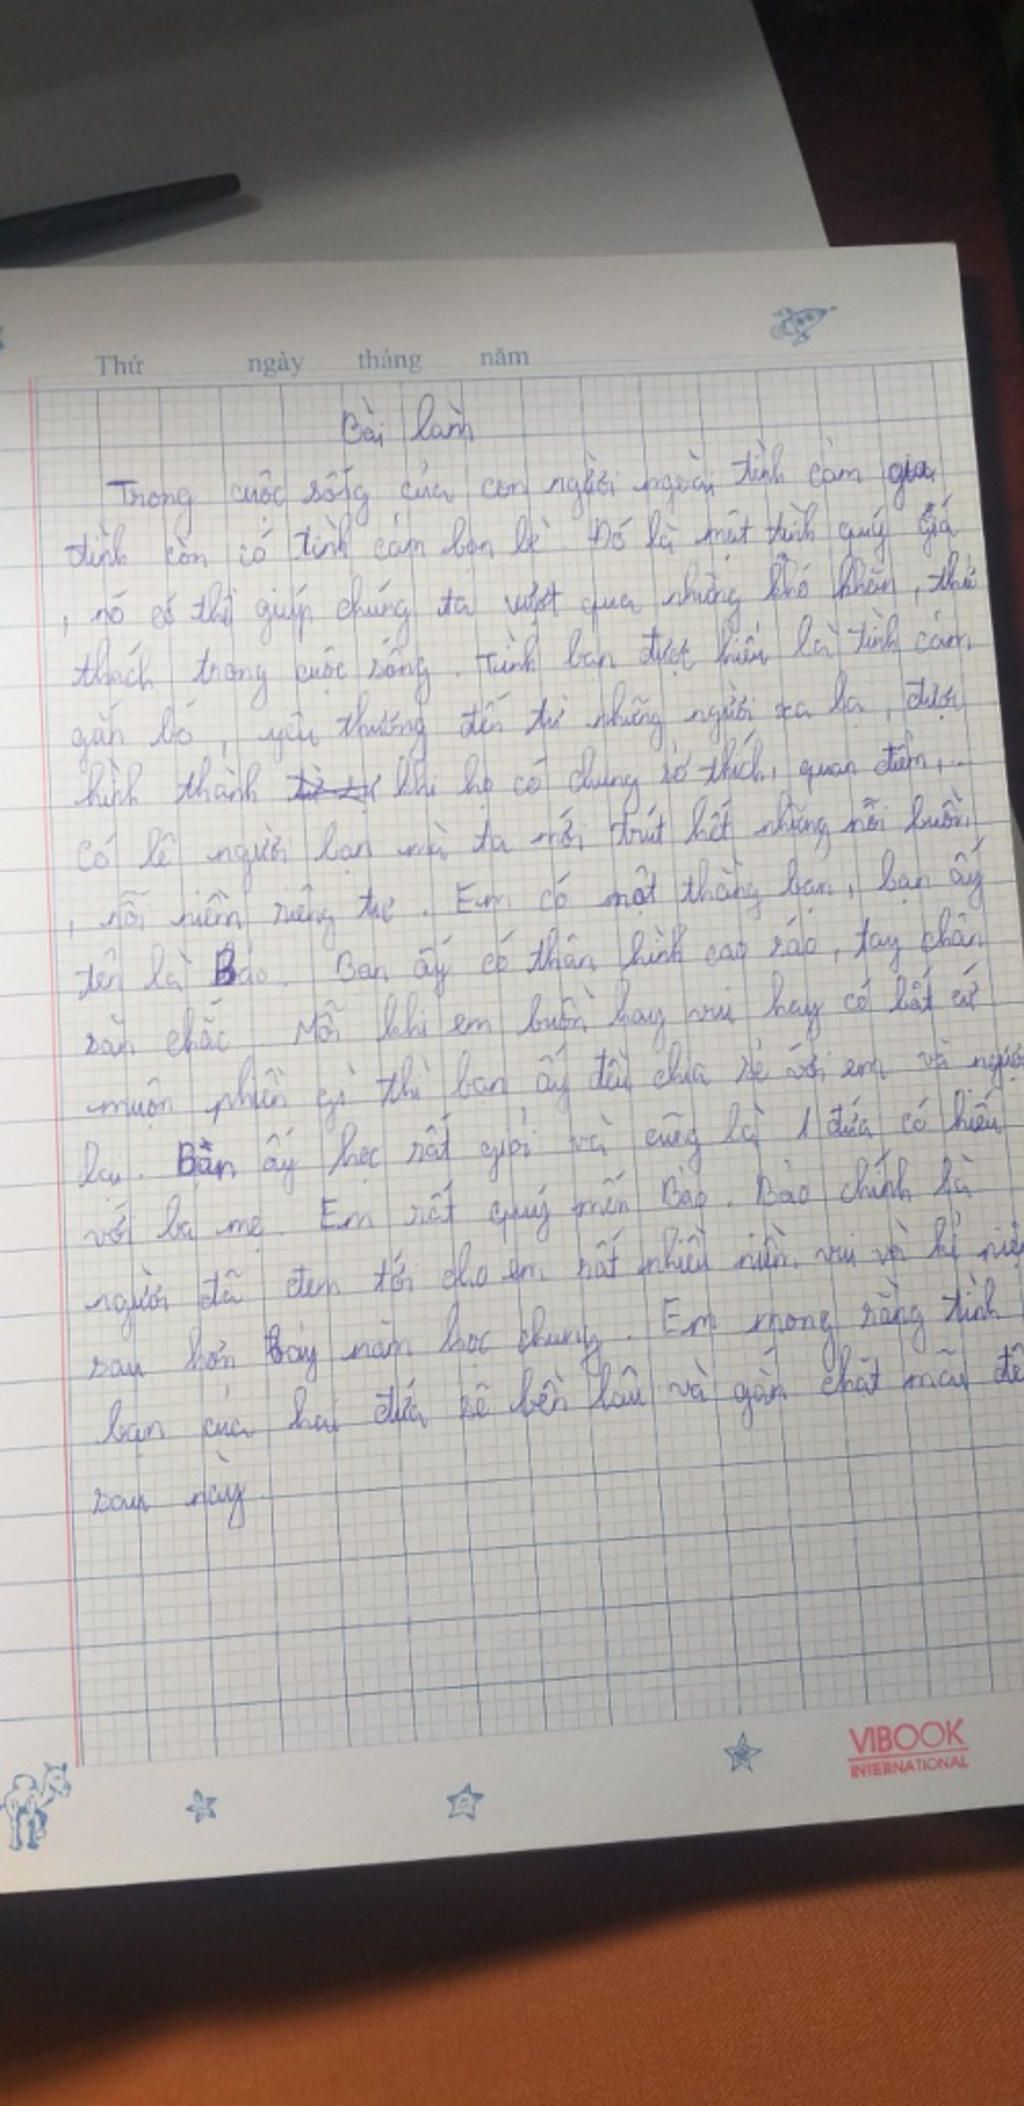 Thứ ngày tháng năm
Bài làm
Trong cuộc sống của con người ngoài tình cảm gia
đình còn có tình cảm bạn bè. Đó là một tình quý giá
, nó có thể giúp chúng ta vượt qua những khó khăn, thử
thách trong cuộc sống. Tình bạn được hiểu là tình cảm
gắn bó, yêu thương đến từ những người xa lạ, được
hình thành khi họ có chung sở thích, quan điểm,...
có lẽ người bạn mà ta mới trút hết những nỗi buồn
, nỗi niềm riêng tư. Em có một thằng bạn, bạn ấy
tên là Bảo. Bạn ấy có thân hình cao ráo, tay chân
săn chắc. Mỗi khi em buồn hay vui hay có bất cứ
muộn phiền gì thì bạn ấy đều chia sẻ với em và ngược
lại. Bạn ấy học rất giỏi và cũng là 1 đứa có hiếu
với ba mẹ. Em rất quý mến Bảo. Bảo chính là
người đã đem tới cho em rất nhiều niềm vui và kỉ niệ
sau hơn bảy năm học chung. Em mong rằng tình
bạn của hai đứa sẽ bền lâu và gắn chặt mãi đế
sau này.
VIBOOK
INTERNATIONAL